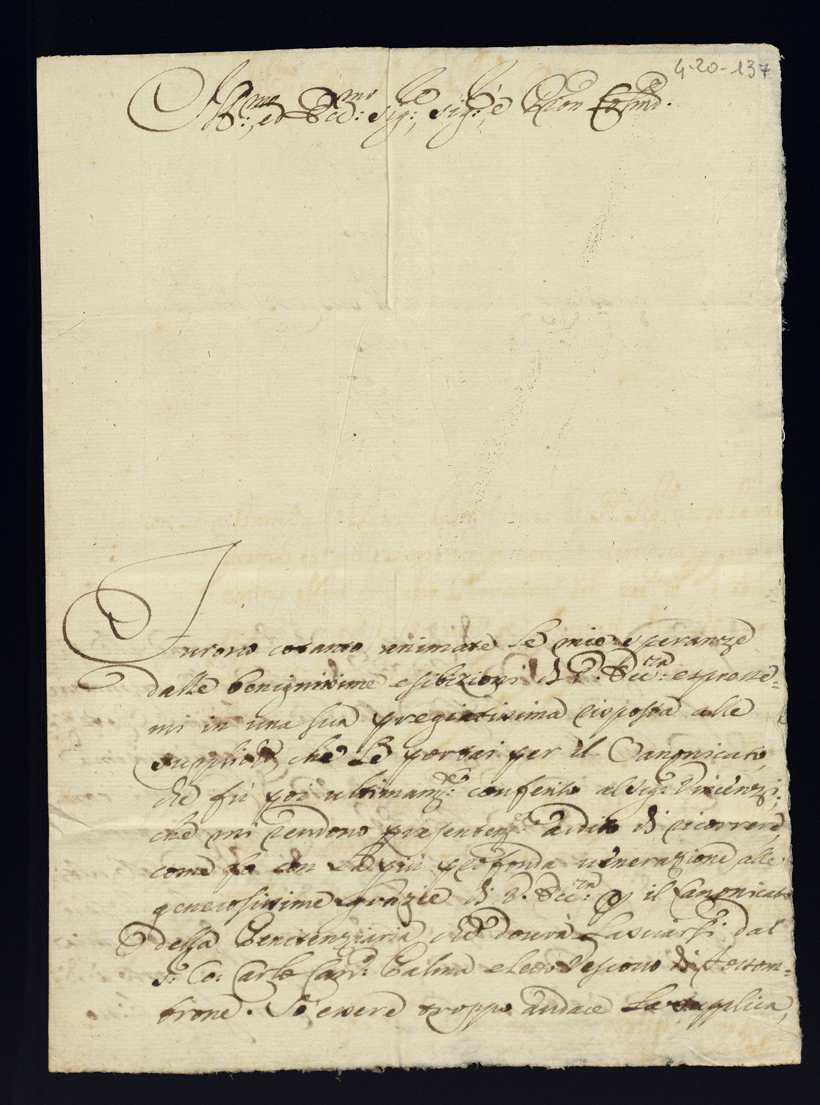 4-20-137
Ill:mo, ed Ecc:mo Sig:re, Sig:re, e Pron Colmo.
Furono cotanto animate le mie speranze
dalle benignissime esibizioni di V. Ecc:za espresse=
mi in una sua pregiatissima risposta alle
suppliche, che Le portai per il Canonicato
che fù poi ultimam:te conferito al Sig:r Vincenzi,
che mi rendono presentem:te ardito di ricorrere
come fo con la più profonda venerazione alle
generosissime grazie di V. Ecc:za p il Canonicato
della Penitenziaria, che dovrà lasciarsi dal
S:r Co: Carlo Can:co eletto Vescovo di Fossom=
brone. Sò essere troppo audace la supplica,